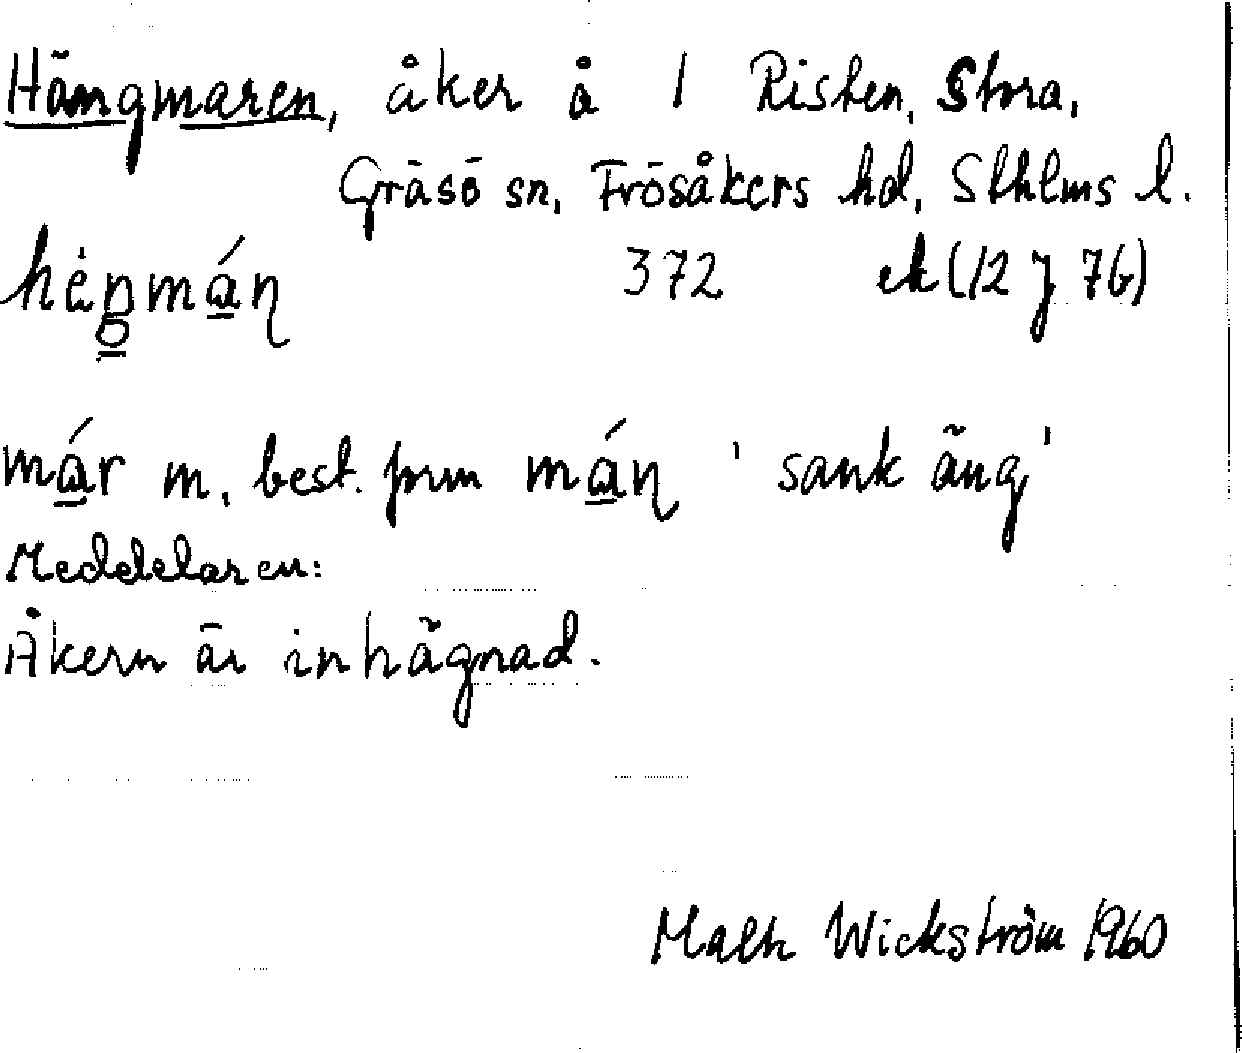 Hängmaren, åker å 1 Risten, Stora,
Gräsö sn, Frösåkers hd, Sthlms l.
372 ek (12 J 7G)
m. best. form 'sank äng'
Meddelaren:
Åkern är inhägnad.
Wickström 1960